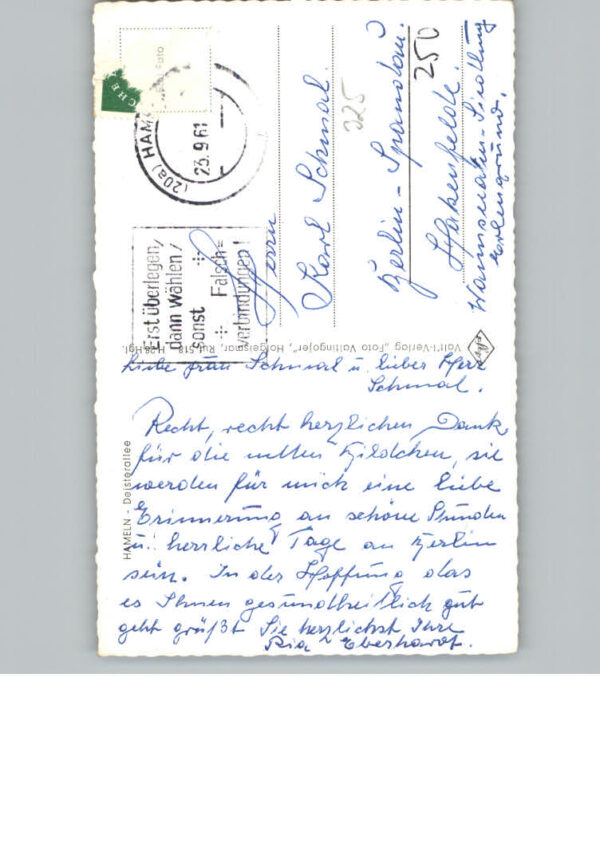 CHE
Foto
(20a) HAM
23.9.61
Erst überlegen,
dann wählen/
sonst Falsch=
verbindungen!
225
Herrn
Karl Schmal.
Berlin - Spandau.
250
Hakenfelde
Wannseaten-Siedlung
Valt'l-Verlag „Foto Valtingojer", Hofgeismar, Ruf 518
HAMELN - Deisterallee
Liebe Frau Schmal u. lieber Herr
Schmal.
Recht, recht herzlichen Dank
für die netten Bildchen, sie
werden für mich eine liebe
Erinnerung an schöne Stunden
u. herrliche Tage an Berlin
sein. In der Hoffung das
es Ihnen gesundheitlich gut
geht grüßt Sie herzlichst Ihre
Ria Eberhardt.